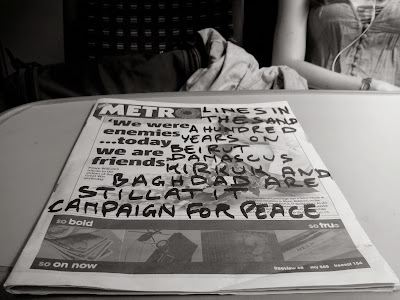 METRO
'We were
enemies
...today
we are
friends'
LINES IN
THE SAND
A HUNDRED
YEARS ON
BEIRUT
DAMASCUS
KIRKUK AND
BAGHDAD ARE
STILL AT IT
CAMPAIGN FOR PEACE
so bold
so true
so on now